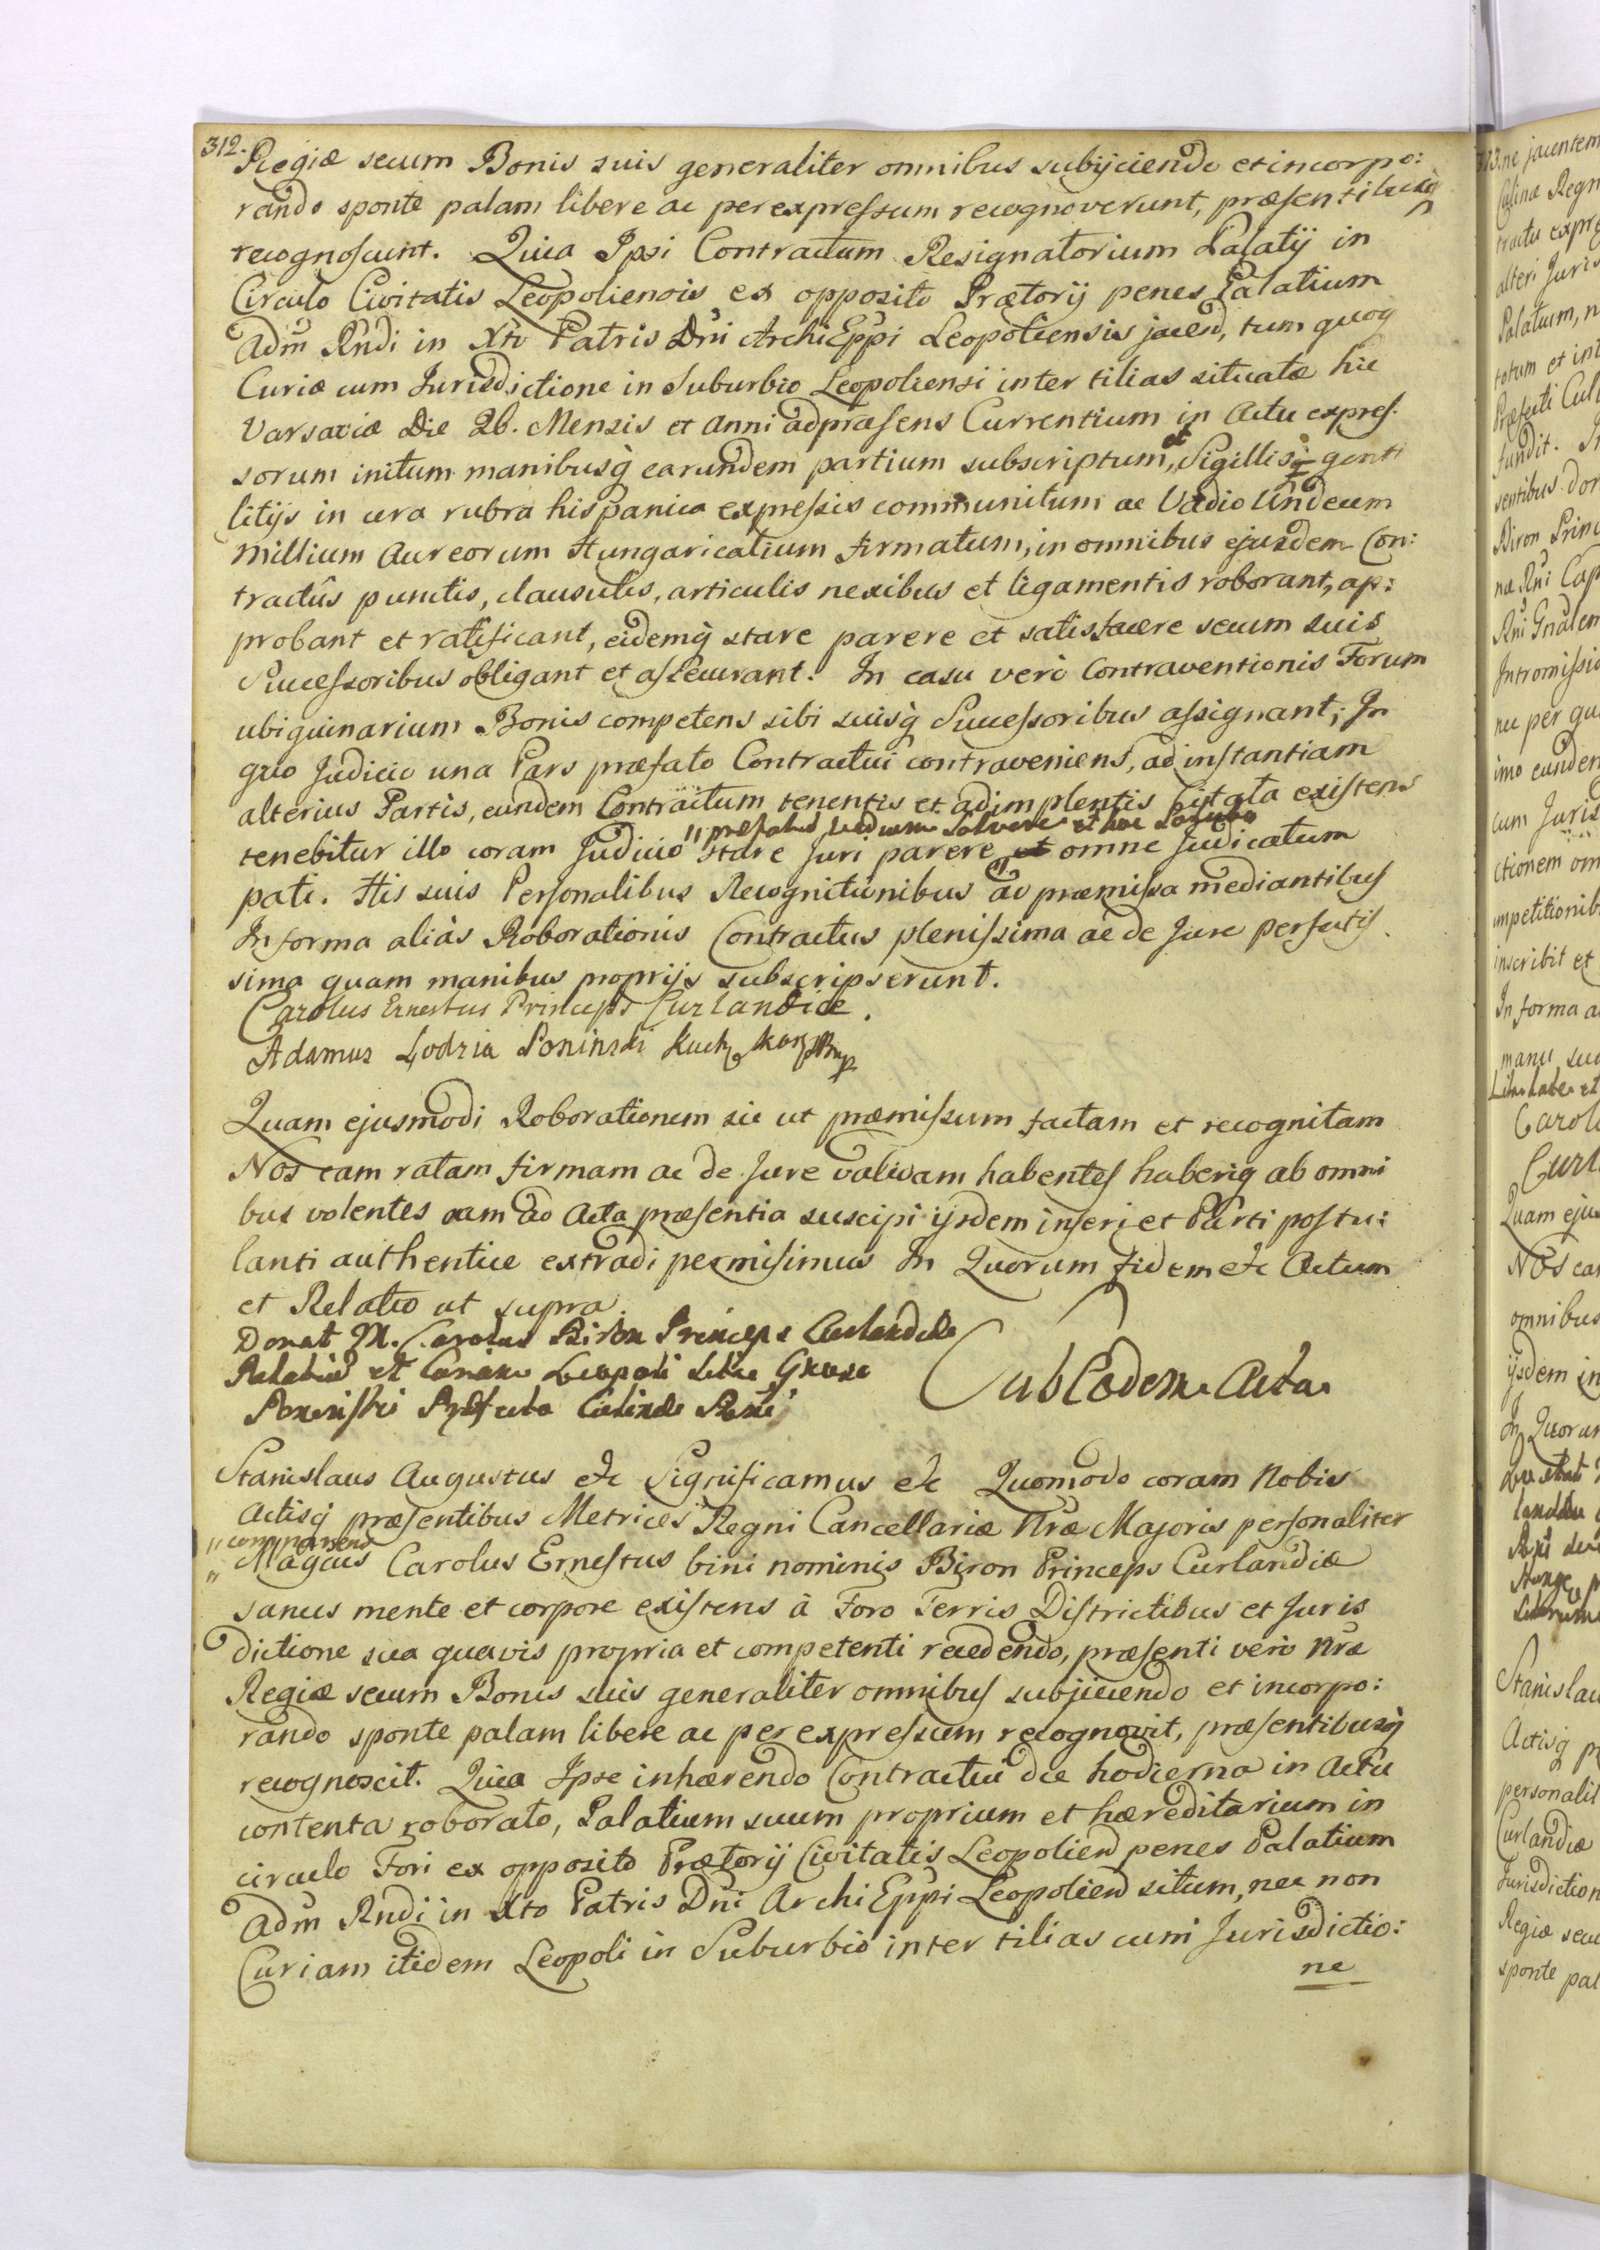 312.
Regiæ secum Bonis suis generaliter omnibus subijciendo et incorpo:
rando sponte palam libere ac per expressum recognoverunt, præsentibusq̀
recognoscunt. Quia Ipsi Contractum Resignatorium Palatij in
Circulo Civitatis Leopoliensis ex opposito Prætorij penes Palatium
Adm̃ Rndi in Xto Patris Dni ArchiEppi Leopoliensis jacen̄, tum quoq
Curiæ cum Jurisdictione in Suburbio Leopoliensi inter tilias situatæ hic
Varsaviæ Die 26. Mensis et Anni ad præsens Currentium in Actu expres
sorum initum manibusq̀ earundem partium subscriptum, et Sigillis genti
litijs in cera rubra hispanica expressis communitum ac Vadio Undecim
Millium Aureorum Hungaricalium firmatum, in omnibus ejusdem Con:
tractûs punctis, clausulis, articulis nexibus et ligamentis roborant, ap:
probant et ratificant, eidemq̀ stare parere et satisfacere secum suis
Successoribus obligant et assecurant. In casu verò Contraventionis Forum
ubiquinarium Bonis competens sibi suisq̀ Successoribus assignant; In
quo Judicio una Pars præfato Contractui contraveniens, ad instantiam
alterius Partis, eundem Contractum tenentis et adimplentis Citata existens
" præfatum vadium solvere et hoc soluto
tenebitur illo coram Judicio " stare Juri parere et omne Judicatum
pati. His suis Personalibus Recognitionibus ac præmissa mediantibus
In forma aliàs Roborationis Contractus plenissima ac de Jure perfectis
sima quam manibus proprijs subscripserunt.
Carolus Ernestus Princeps Curlandiæ.
Adamus Lodzia Poninski Kuch Kor mp
Quam ejusmodi Roborationem sic ut præmissum factam et recognitam
Nos eam ratam firmam ac de Jure validam habentes haberiq ab omni
bus volentes eam ad Acta præsentia suscipi ijsdem inseri et Parti postu:
lanti authentice extradi permisimus In Quorum fidem etc Actum
et Relatio ut supra.
Donat M. Carolus Biron Princeps Curlandiæ
Palatium et Curiam Leopoli
Poninski Præfecto Culinæ Regni
Sub Eodem Actu
Stanislaus Augustus etc Significamus etc Quomodo coram Nobis
Actisq̀ præsentibus Metrices Regni Cancellariæ Nr̃æ Majoris personaliter
" comparens
" Magcus Carolus Ernestus bini nominis Biron Princeps Curlandiæ
sanus mente et corpore existens à Foro Terris Districtibus et Juris
dictione sua quavis propria et competenti recedendo, præsenti verò Nr̃æ
Regiæ secum Bonis suis generaliter omnibus subjiciendo et incorpo:
rando sponte palam libere ac per expressum recognovit, præsentibusq̀
recognoscit. Quia Ipse inhærendo Contractui die hodierna in Actu
contenta roborato, Palatium suum proprium et hæreditarium in
circulo Fori ex opposito Prætorij Civitatis Leopolien̄ penes Palatium
Adm̃ Rndi in Xto Patris Dni ArchiEppi Leopolien̄ situm, nec non
Curiam itidem Leopoli in Suburbio inter tilias cum Jurisdictio:
ne